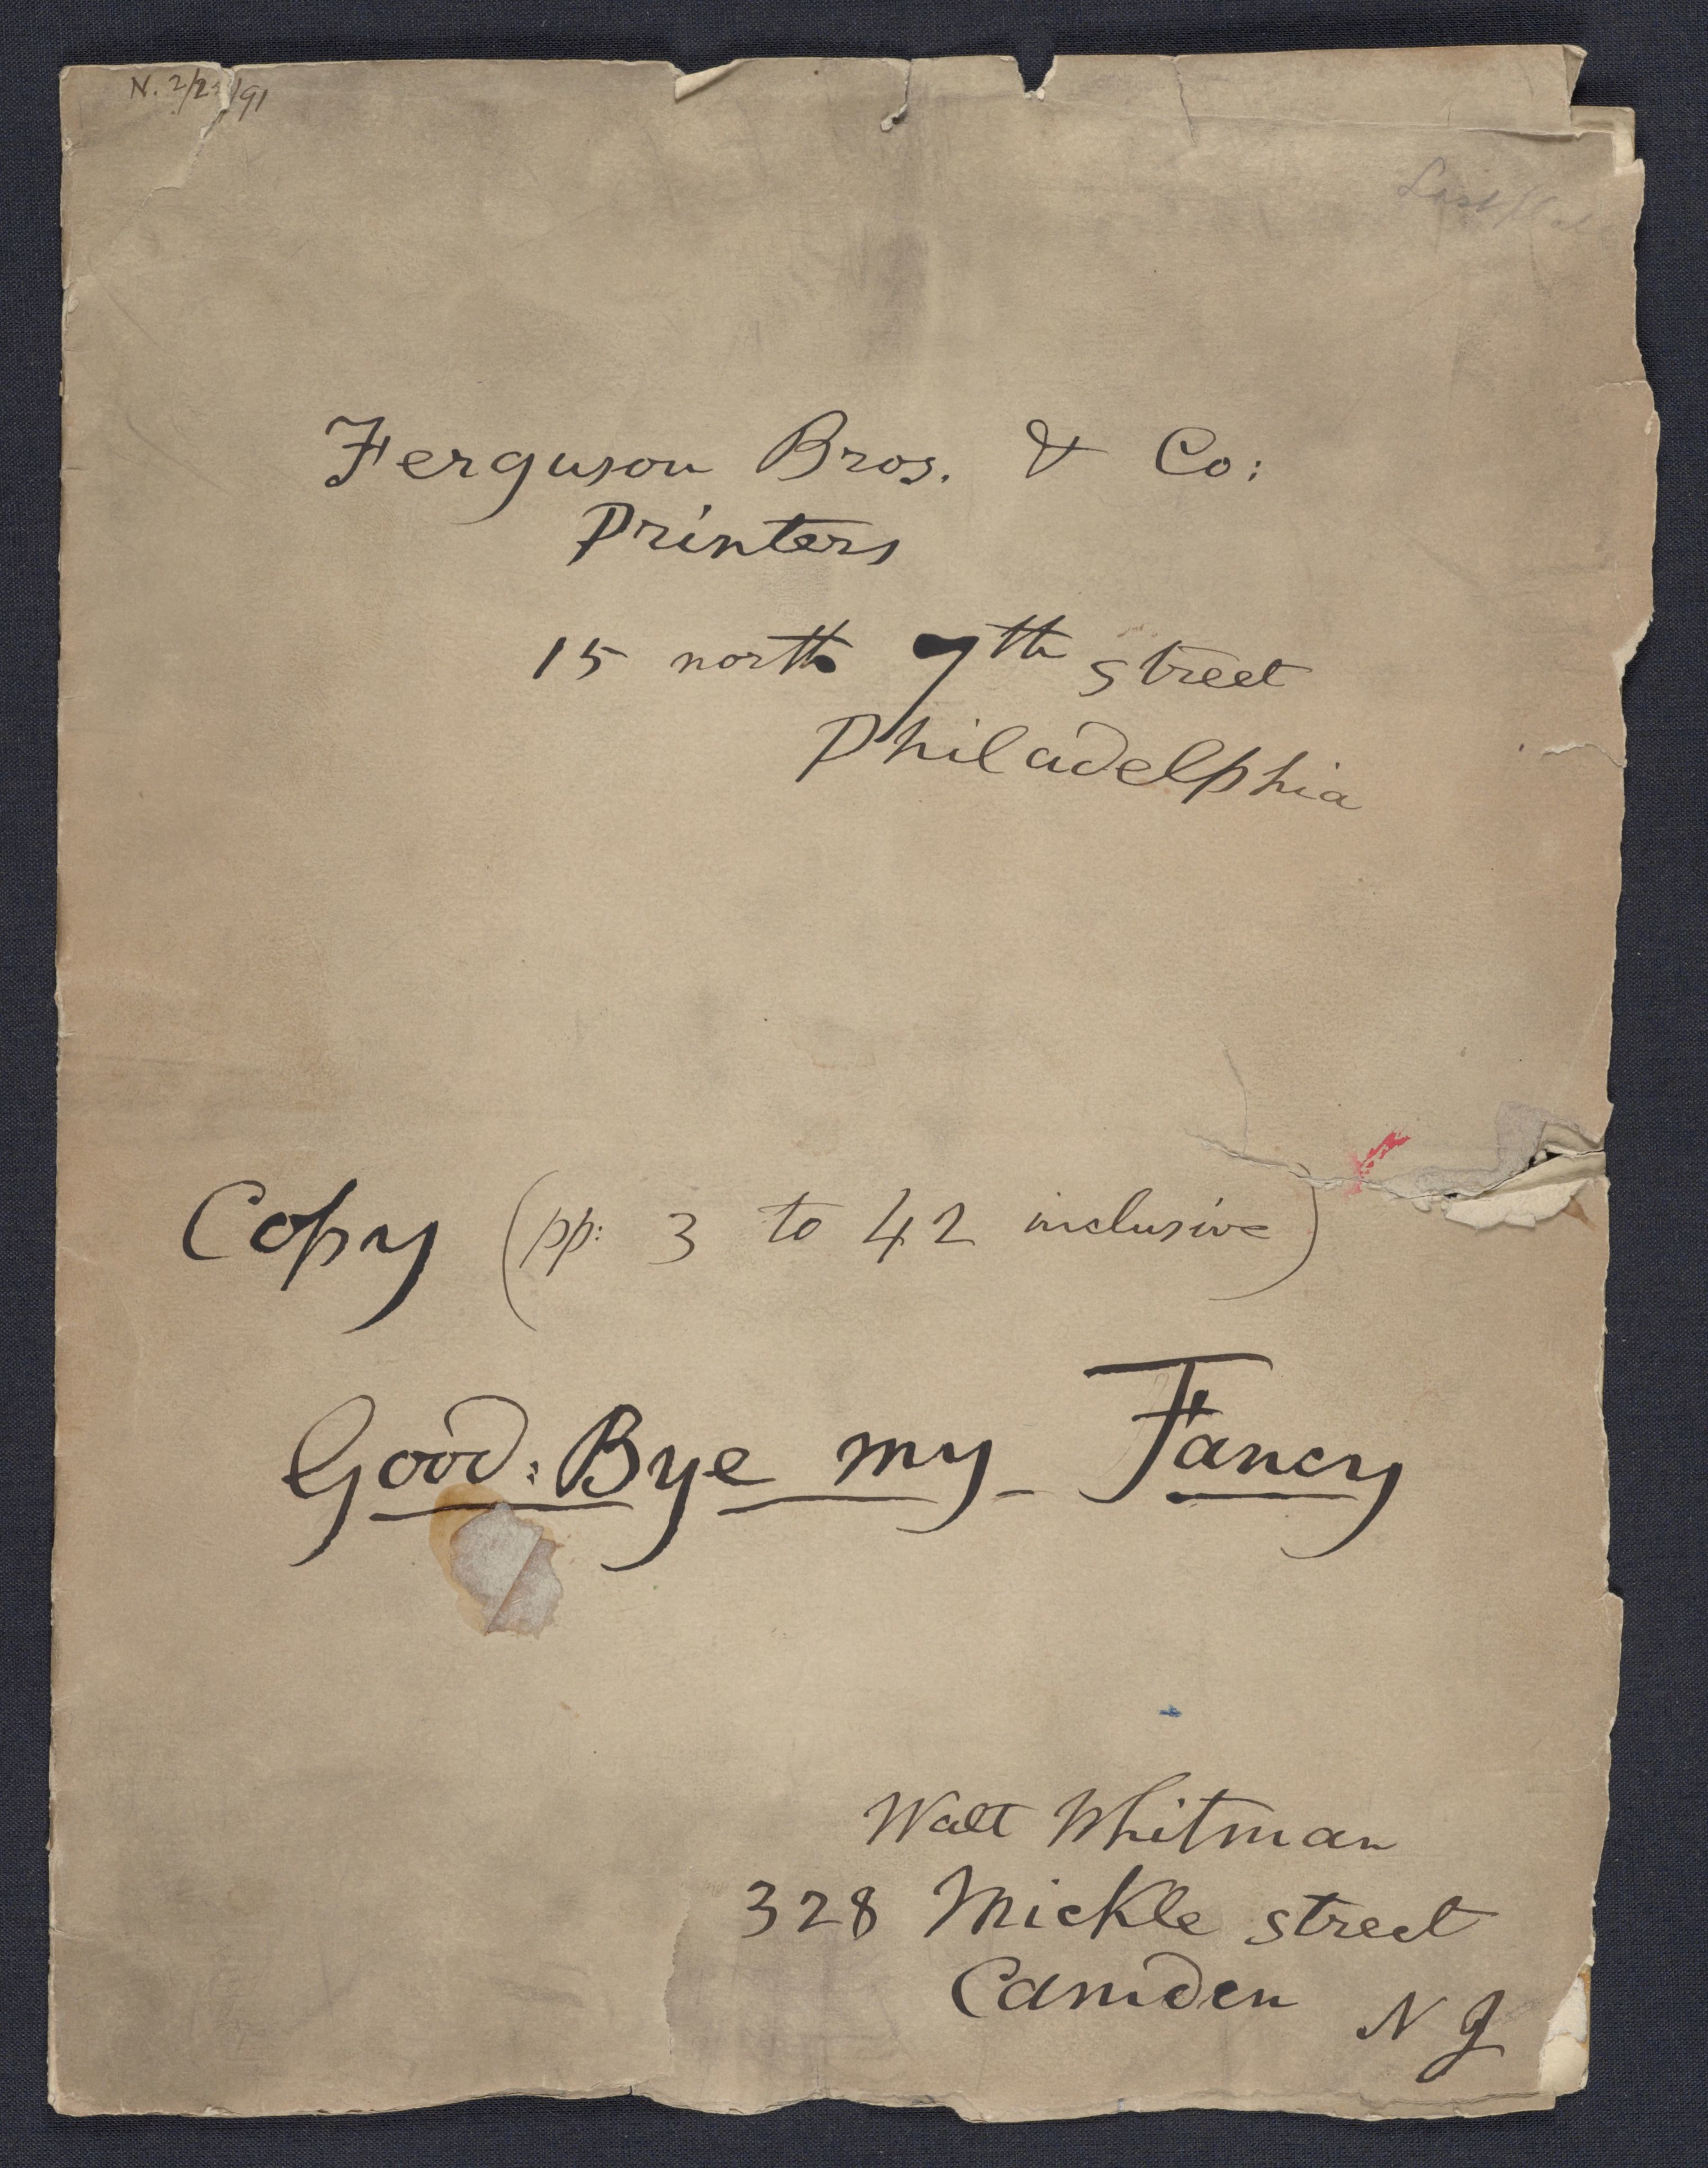 Ferguson Bros. & Co:
Printers
15 north 7th street
Philadelphia
Copy (pp: 3 to 42 inclusive)
Good-Bye my Fancy
Walt Whitman
328 Mickle street
Camden N J